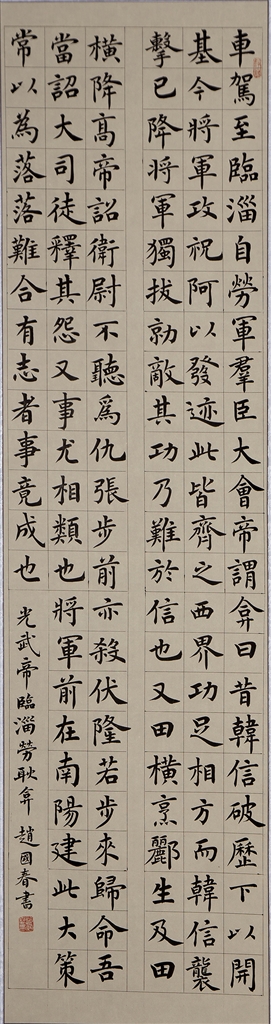 車駕至臨淄自勞軍羣臣大會帝謂弇曰昔韓信破歷下以開
基今將軍攻祝阿以發迹此皆齊之西界功足相方而韓信襲
擊已降將軍獨拔勍敵其功乃難於信也又田橫烹酈生及田
橫降高帝詔衛尉不聽為仇張步前亦殺伏隆若步來歸命吾
當詔大司徒釋其怨又事尤相類也將軍前在南陽建此大策
常以為落落難合有志者事竟成也
光武帝臨淄勞耿弇 趙國春書